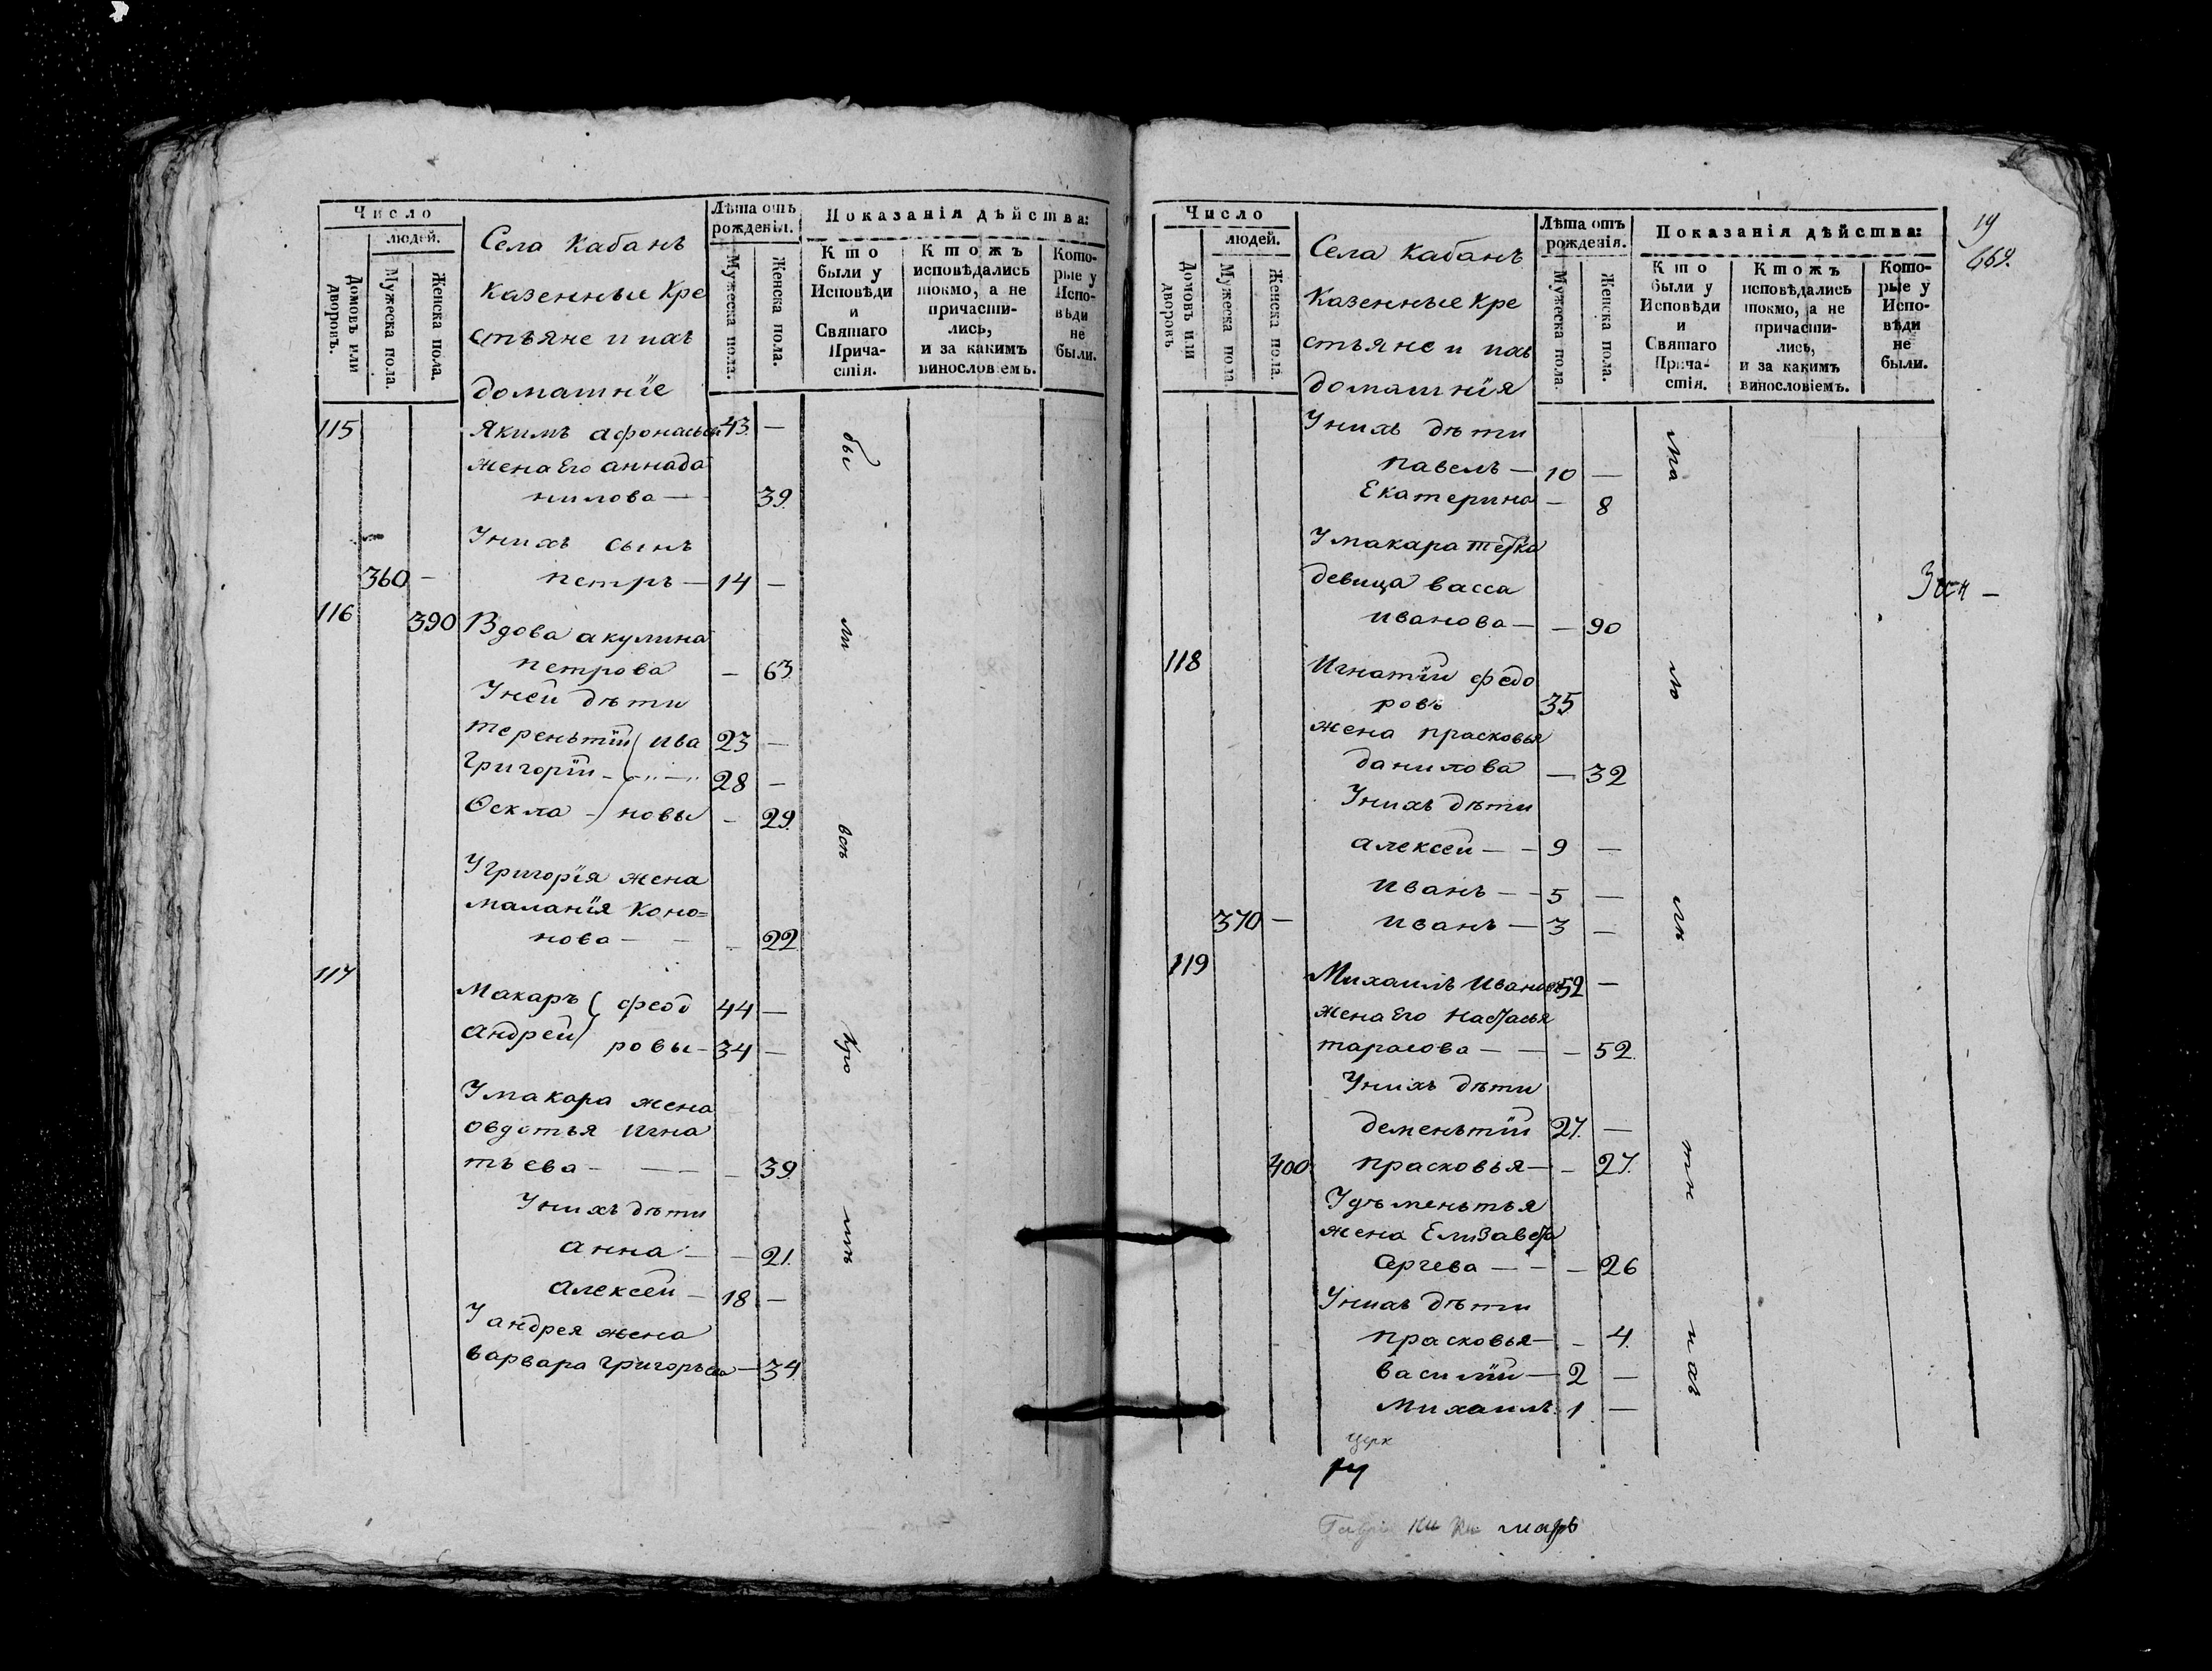 Число
людей.
Домовъ или дворовъ.
Мужеска пола.
Женска пола.
Села Кабанъ
казенные кре
стьяне и ихъ
домашнїе
Лѣта отъ рожденія.
Мужеска пола.
Женска пола.
Показанія дѣйства:
Кто были у Исповѣди и Святаго Причастія.
Ктожъ исповѣдались токмо, а не причастились, и за какимъ винословіемъ.
Которые у Исповѣди не были.
115 Якимъ афонасьев 43 —
жена Его анна да
нилова — 39
Унихъ сынъ
360 — петръ — 14 —
116 390 Вдова акулина
петрова — 63
Уней дѣти
терентїй ива 23 —
Григорїй — 28 —
Фекла — новы — 29
Угригорїя жена
маланїя Коно=
нова — — — 22
117
Макаръ феод 44 —
андрей ровы — 34 —
Умакара жена
овдотья игна
тьева — — — 39
Унихъ дѣти
анна — — 21
алексей — 18 —
Уандрея жена
варвара григорьева — 34
бы
ли
всѣ
Число
людей.
Домовъ или дворовъ
Мужеска пола
Женска пола.
Села Кабанъ
казенные кре
стьяне и ихъ
домашнїя
Лѣта отъ рожденія.
Мужеска пола.
Женска пола.
Показанія дѣйства:
Кто были у Исповѣди и Святаго Причастія.
Ктожъ исповѣдались токмо, а не причастились, и за какимъ винословіемъ.
Которые у Исповѣди не были.
19
669.
Унихъ дѣти
павелъ — 10 —
Екатерина — 8
Умакара тетка
девица васса
иванова — — 90
118 Игнатїй федо
ровъ 35
жена прасковья
данилова — 32
Унихъ дѣти
алексей — — 9 —
иванъ — — 5 —
370 — иванъ — 3 —
119
Михаилъ Ивановъ 52 —
жена Его настасья
тарасова — — — 52
Унихъ дѣти
дементїй 27. —
400 прасковья — — 27.
Удементья
жена Елизавета
Сергева — — — 26
Унихъ дѣти
прасковья — — 4
василїй — 2 —
михаилъ. 1 —
ма
лю